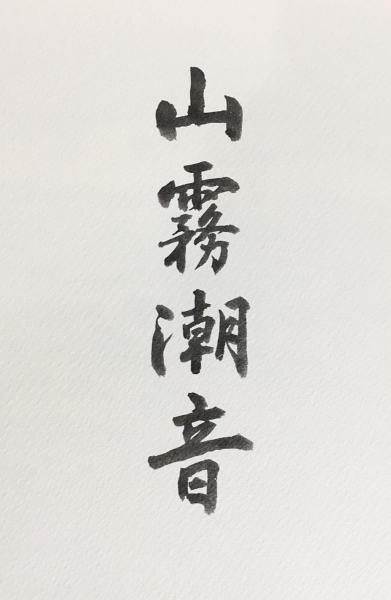 山霧潮音